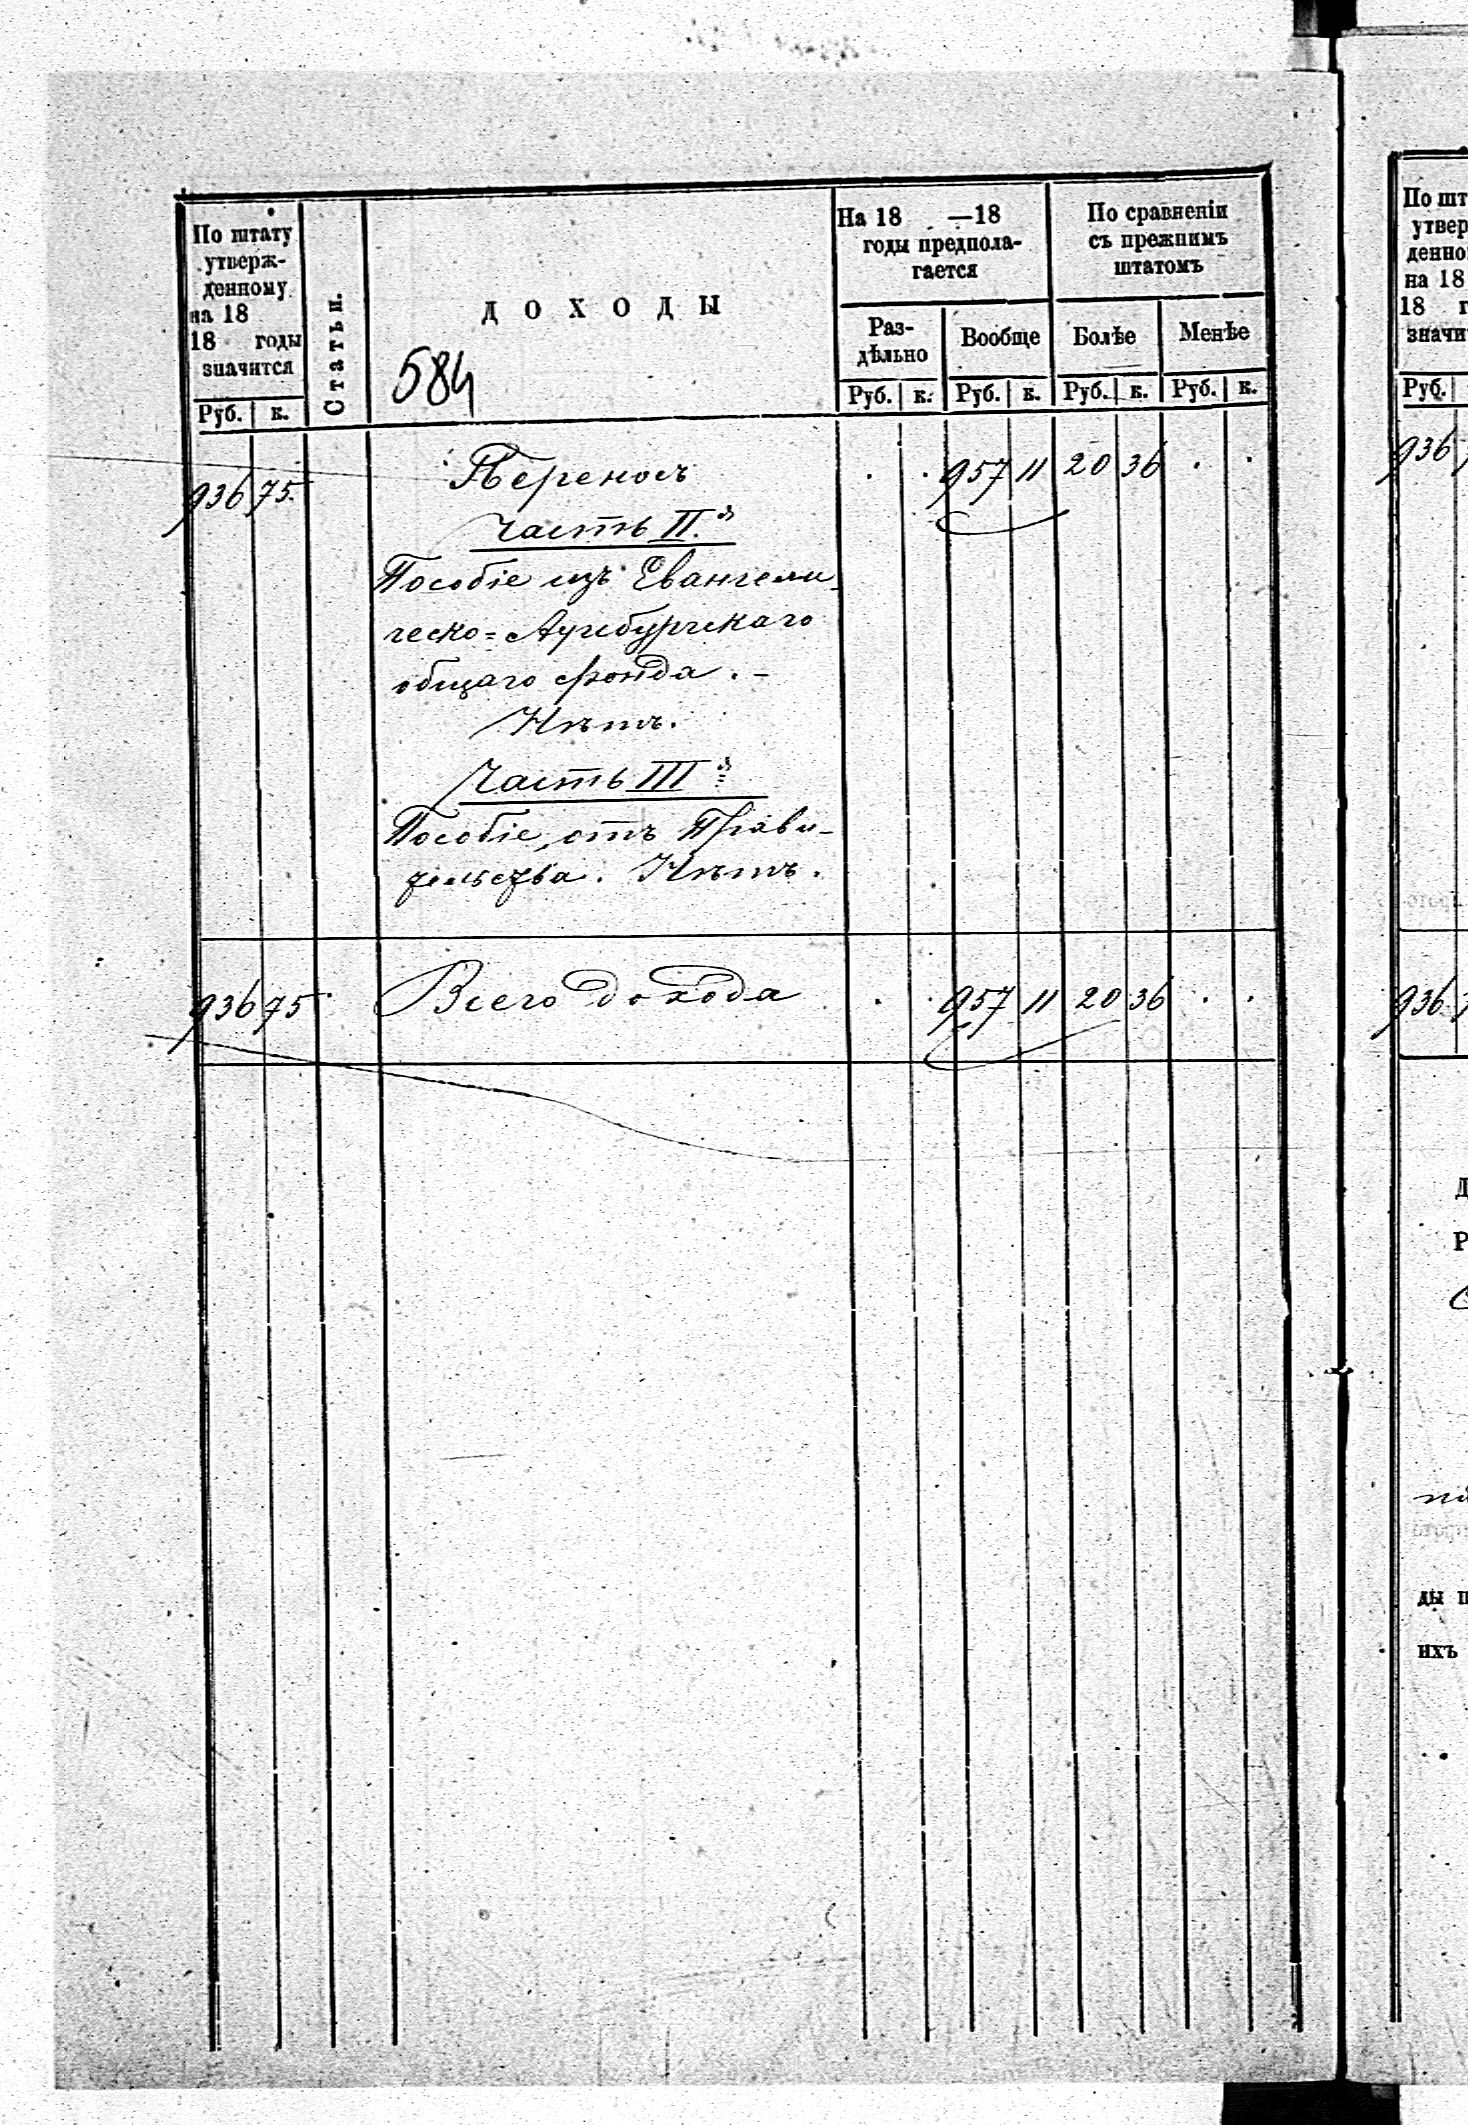 По штату
утверж-
денному
на 18
18 годы
значится
Руб. к.
Статьи.
ДОХОДЫ
584
На 18 —18
годы предпола-
гается
Раз-
дѣльно
Вообще
Руб. к. Руб. к.
По сравненіи
съ прежнимъ
штатомъ
Болѣе Менѣе
Руб. к. Руб. к.
936 75 Переносъ . . 957 11 20 36 . .
Часть II.я
Пособіе изъ Евангели
ческо=Аугсбургскаго
общаго фонда . –
Нѣтъ.
Часть IIIя
Пособіе отъ Прави-
тельства. Нѣтъ.
936 75 Всего дохода . . 957 11 20 36 . .
По шт
утвер
денно
на 18
18 г
значи
Руб.
936
936
Д
Р
ды п
ихъ